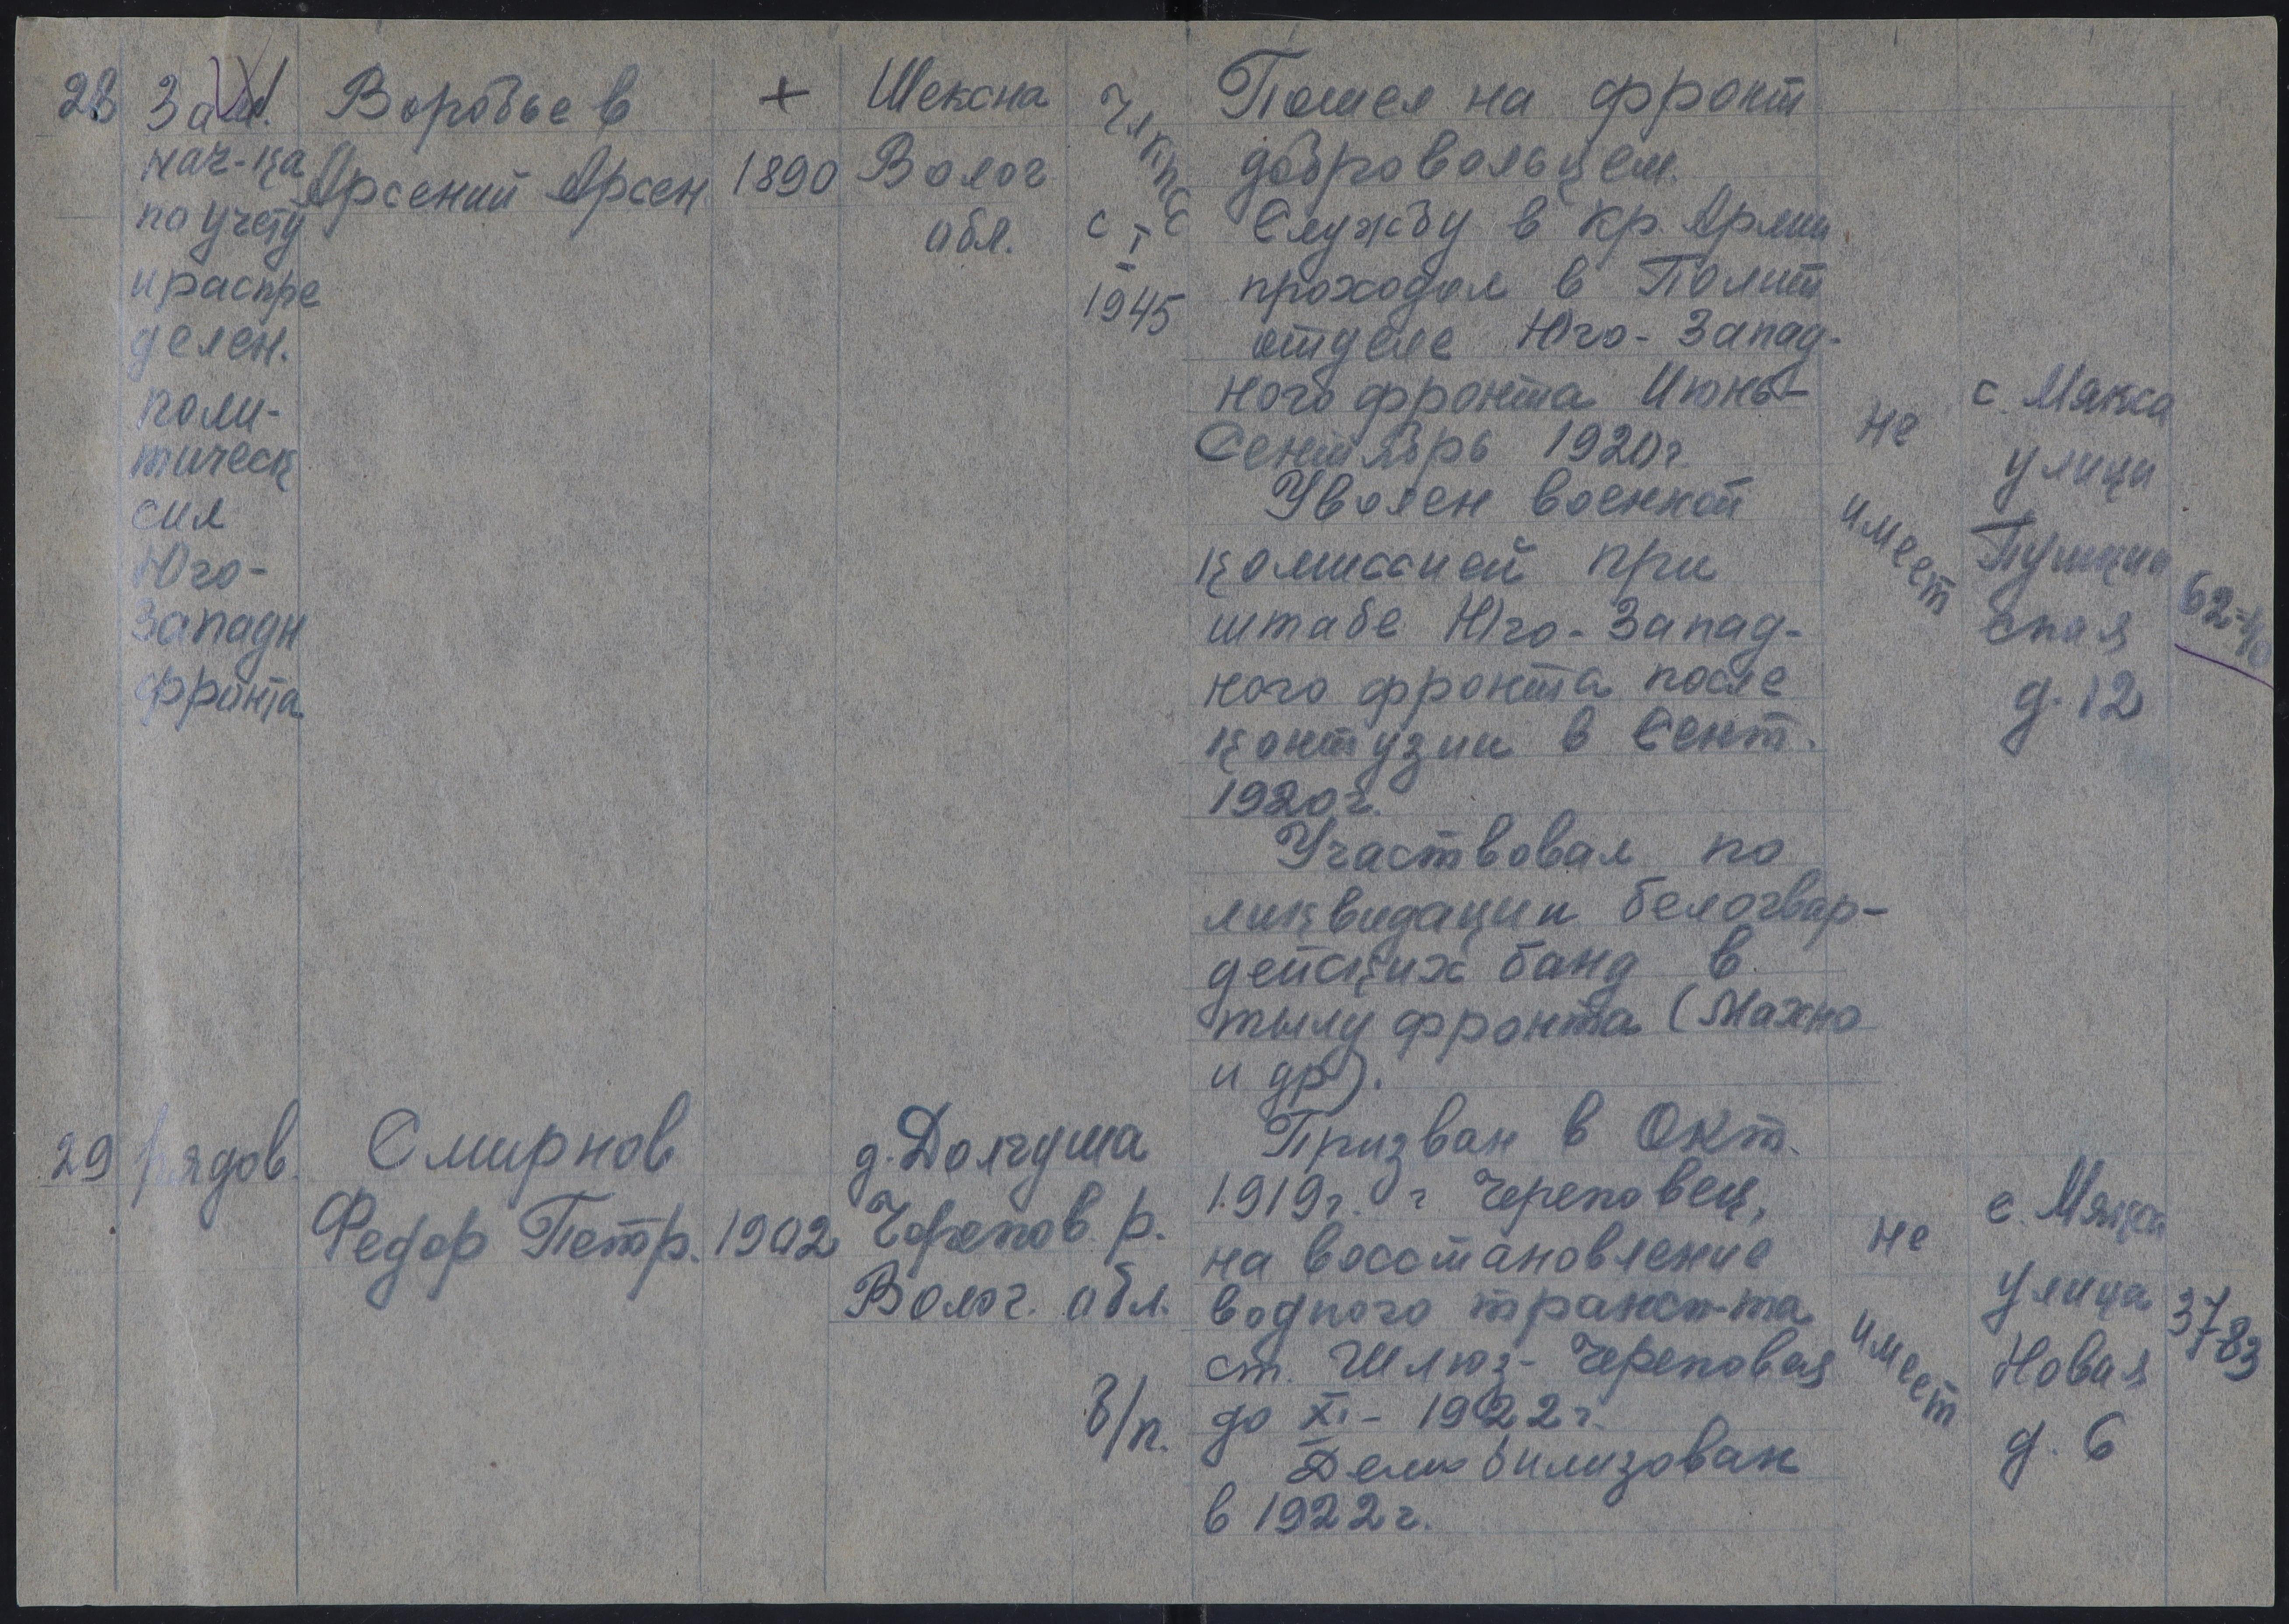 28
Зам.
нач-ка
по учету
и распре
делен.
поли-
тическ
сил
Юго-
Западн
фронта
Воробьев
Арсений Арсен.
+
1890
Шексна
Волог
обл.
ЧлКПСС
с I
1945
Пошел на фронт
добровольцем.
Службу в Кр. Армии
проходил в Полит
отделе Юго-Запад-
ного фронта Июнь-
Сентябрь 1920г
Уволен военной
комиссией при
штабе Юго-Запад-
ного фронта после
контузии в Сент.
1920г.
Участвовал по
ликвидации белогвар-
дейских банд в
тылу фронта (Махно
и др).
не
имеет
с. Мякса
улица
Пушкин
ская
д. 12
62-40
29
Рядов.
Смирнов
Федор Петр.
1902
д. Долгуша
Черепов. р.
Волог. обл.
б/п.
Призван в Окт.
1919г. г Череповец,
на восстановление
водного трансп-та
ст. Шлюз-Череповец
до XI - 1922г.
Демобилизован
в 1922г.
не
имеет
с. Мякса
улица
Новая
д. 6
37-83